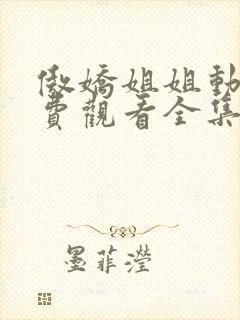 傲嬌姐姐動
費觀看全集
墨菲瀅